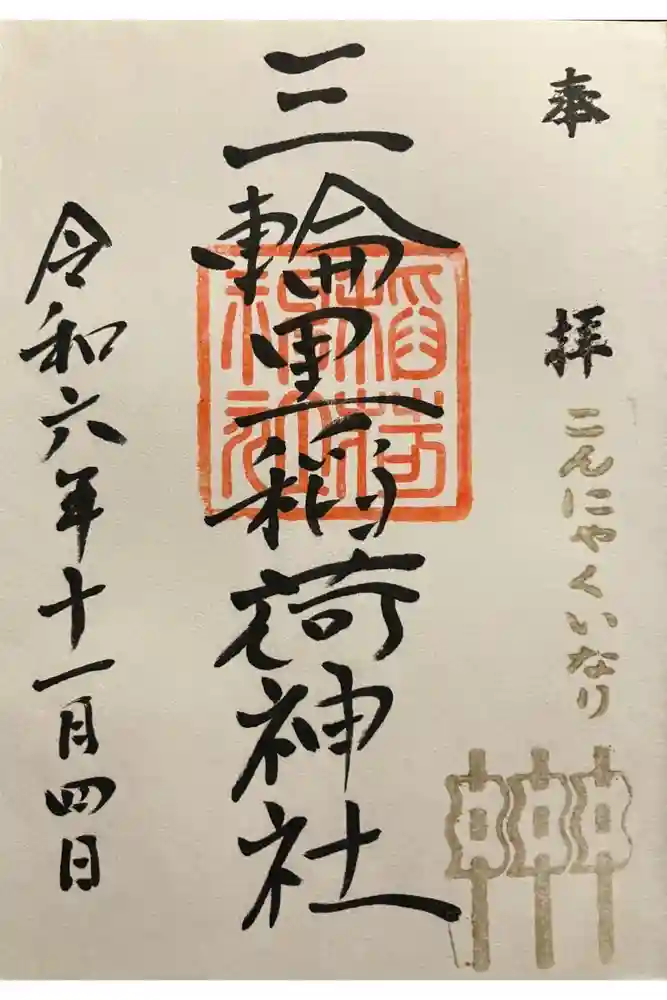 奉拝
こんにゃくいなり
三輪里稲荷神社
稲荷神社
令和六年十一月四日